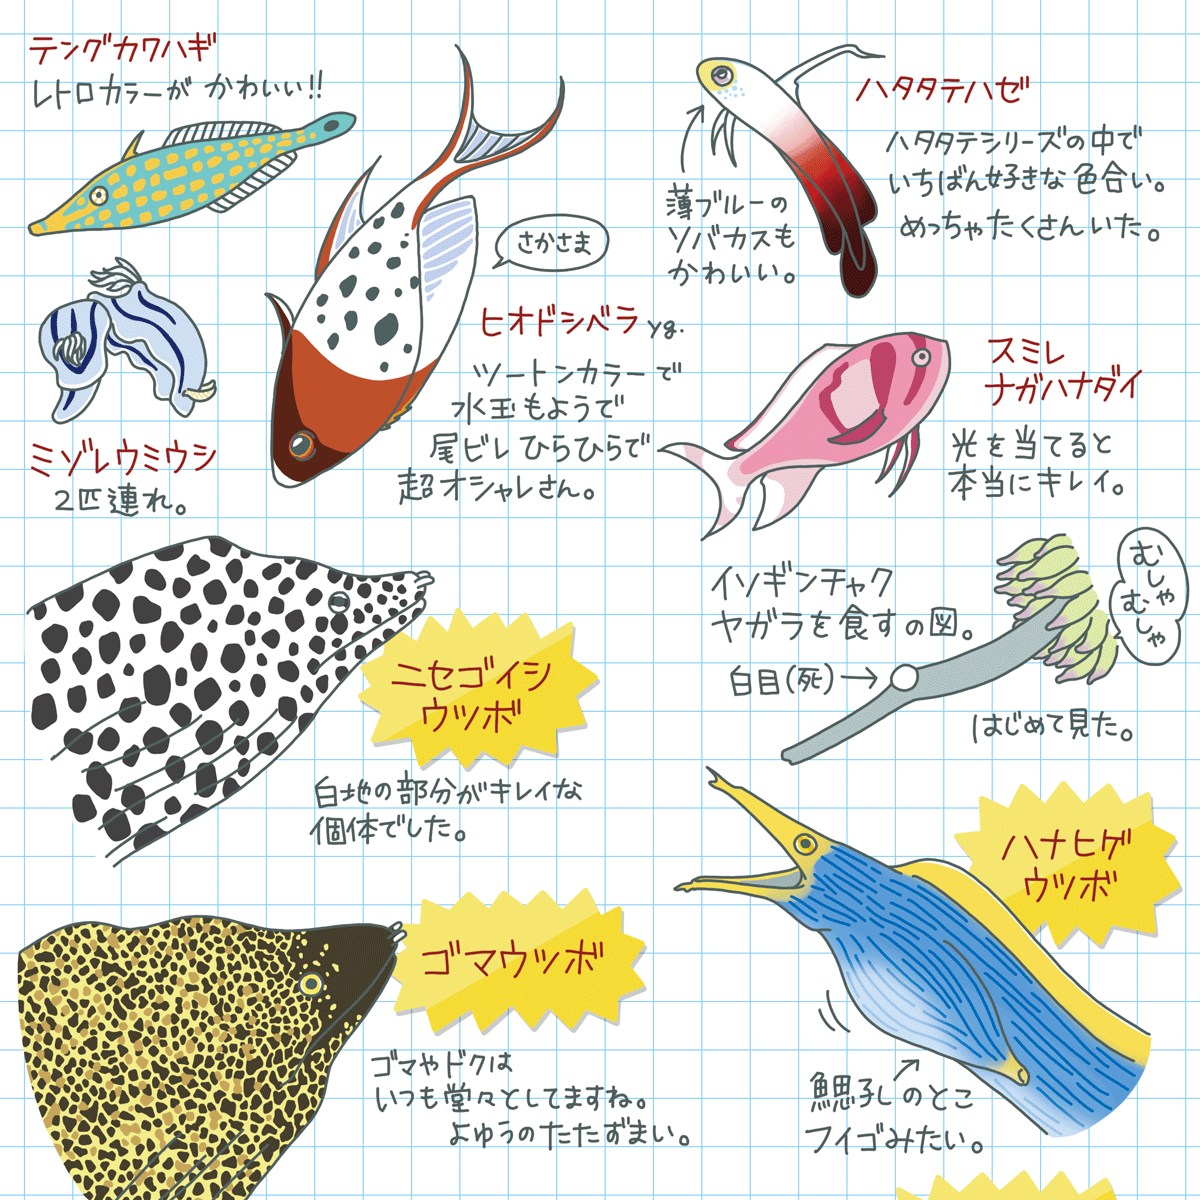 テングカワハギ
レトロカラーが かわいい!!
ミゾレウミウシ
2匹連れ。
さかさま
ヒオドシベラ yg.
ツートンカラーで
水玉もようで
尾ビレひらひらで
超オシャレさん。
ハタタテハゼ
ハタタテシリーズの中で
いちばん好きな色合い。
めっちゃたくさんいた。
薄ブルーの
ソバカスも
かわいい。
スミレ
ナガハナダイ
光を当てると
本当にキレイ。
ニセゴイシ
ウツボ
白地の部分がキレイな
個体でした。
イソギンチャク
ヤガラを食すの図。
白目(死)→
むしゃ
むしゃ
はじめて見た。
ゴマウツボ
ゴマやドクは
いつも堂々としてますね。
よゆうのたたずまい。
ハナヒゲ
ウツボ
鰓孔のとこ
フイゴみたい。